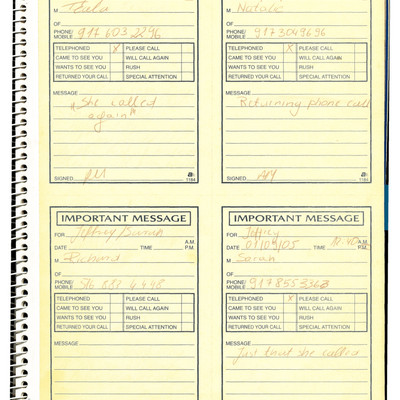 M
OF
PHONE/
MOBILE 917 603 2296
TELEPHONED X PLEASE CALL
CAME TO SEE YOU WILL CALL AGAIN
WANTS TO SEE YOU RUSH
RETURNED YOUR CALL SPECIAL ATTENTION
MESSAGE
"She called
again"
SIGNED
1184
M Natalie
OF
PHONE/
MOBILE 9173049696
TELEPHONED X PLEASE CALL
CAME TO SEE YOU WILL CALL AGAIN
WANTS TO SEE YOU RUSH
RETURNED YOUR CALL SPECIAL ATTENTION
MESSAGE
Returning phone call
SIGNED
1184
IMPORTANT MESSAGE
FOR Jeffrey/Sarah
A.M.
DATE TIME P.M.
M Richard
OF
PHONE/
MOBILE
TELEPHONED PLEASE CALL
CAME TO SEE YOU WILL CALL AGAIN
WANTS TO SEE YOU RUSH
RETURNED YOUR CALL SPECIAL ATTENTION
MESSAGE
IMPORTANT MESSAGE
FOR Jeffrey
A.M.
DATE TIME P.M.
M Sarah
OF
PHONE/
MOBILE
TELEPHONED X PLEASE CALL
CAME TO SEE YOU WILL CALL AGAIN
WANTS TO SEE YOU RUSH
RETURNED YOUR CALL SPECIAL ATTENTION
MESSAGE
Just that she called